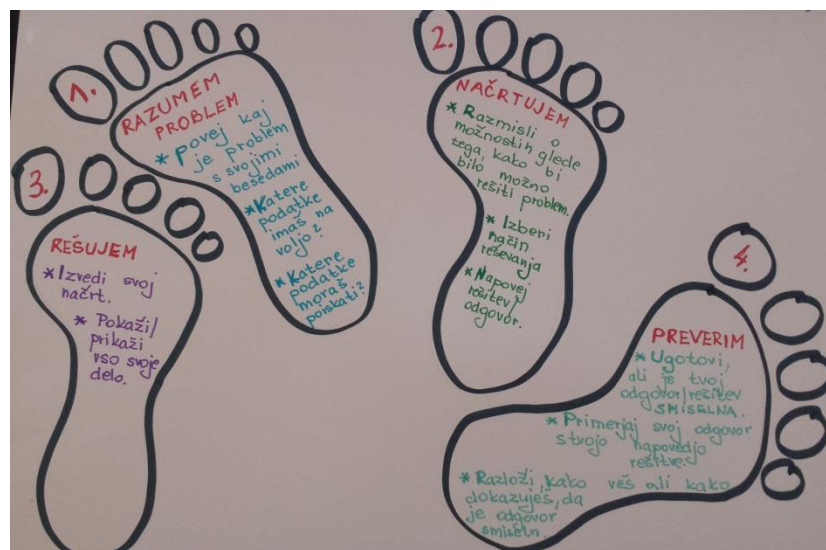 1.
RAZUMEM
PROBLEM
* povej kaj
je problem
s svojimi
besedami
* Katere
podatke
imaš na
voljo?
* Katere
podatke
moraš
poiskati?
2.
NAČRTUJEM
* Razmisli o
možnostih glede
tega, kako bi
bilo možno
rešiti problem.
* Izberi
način
reševanja
* Napovej
rešitev/
odgovor.
3.
REŠUJEM
* Izvedi svoj
načrt.
* Pokaži/
prikaži
vso svoje
delo.
4.
PREVERIM
* Ugotovi,
ali je tvoj
odgovor/rešitev
SMISELNA.
* Primerjaj svoj odgovor
s tvojo napovedjo
rešitve.
* Razloži, kako veš ali kako
dokazuješ, da
je odgovor
smiseln.